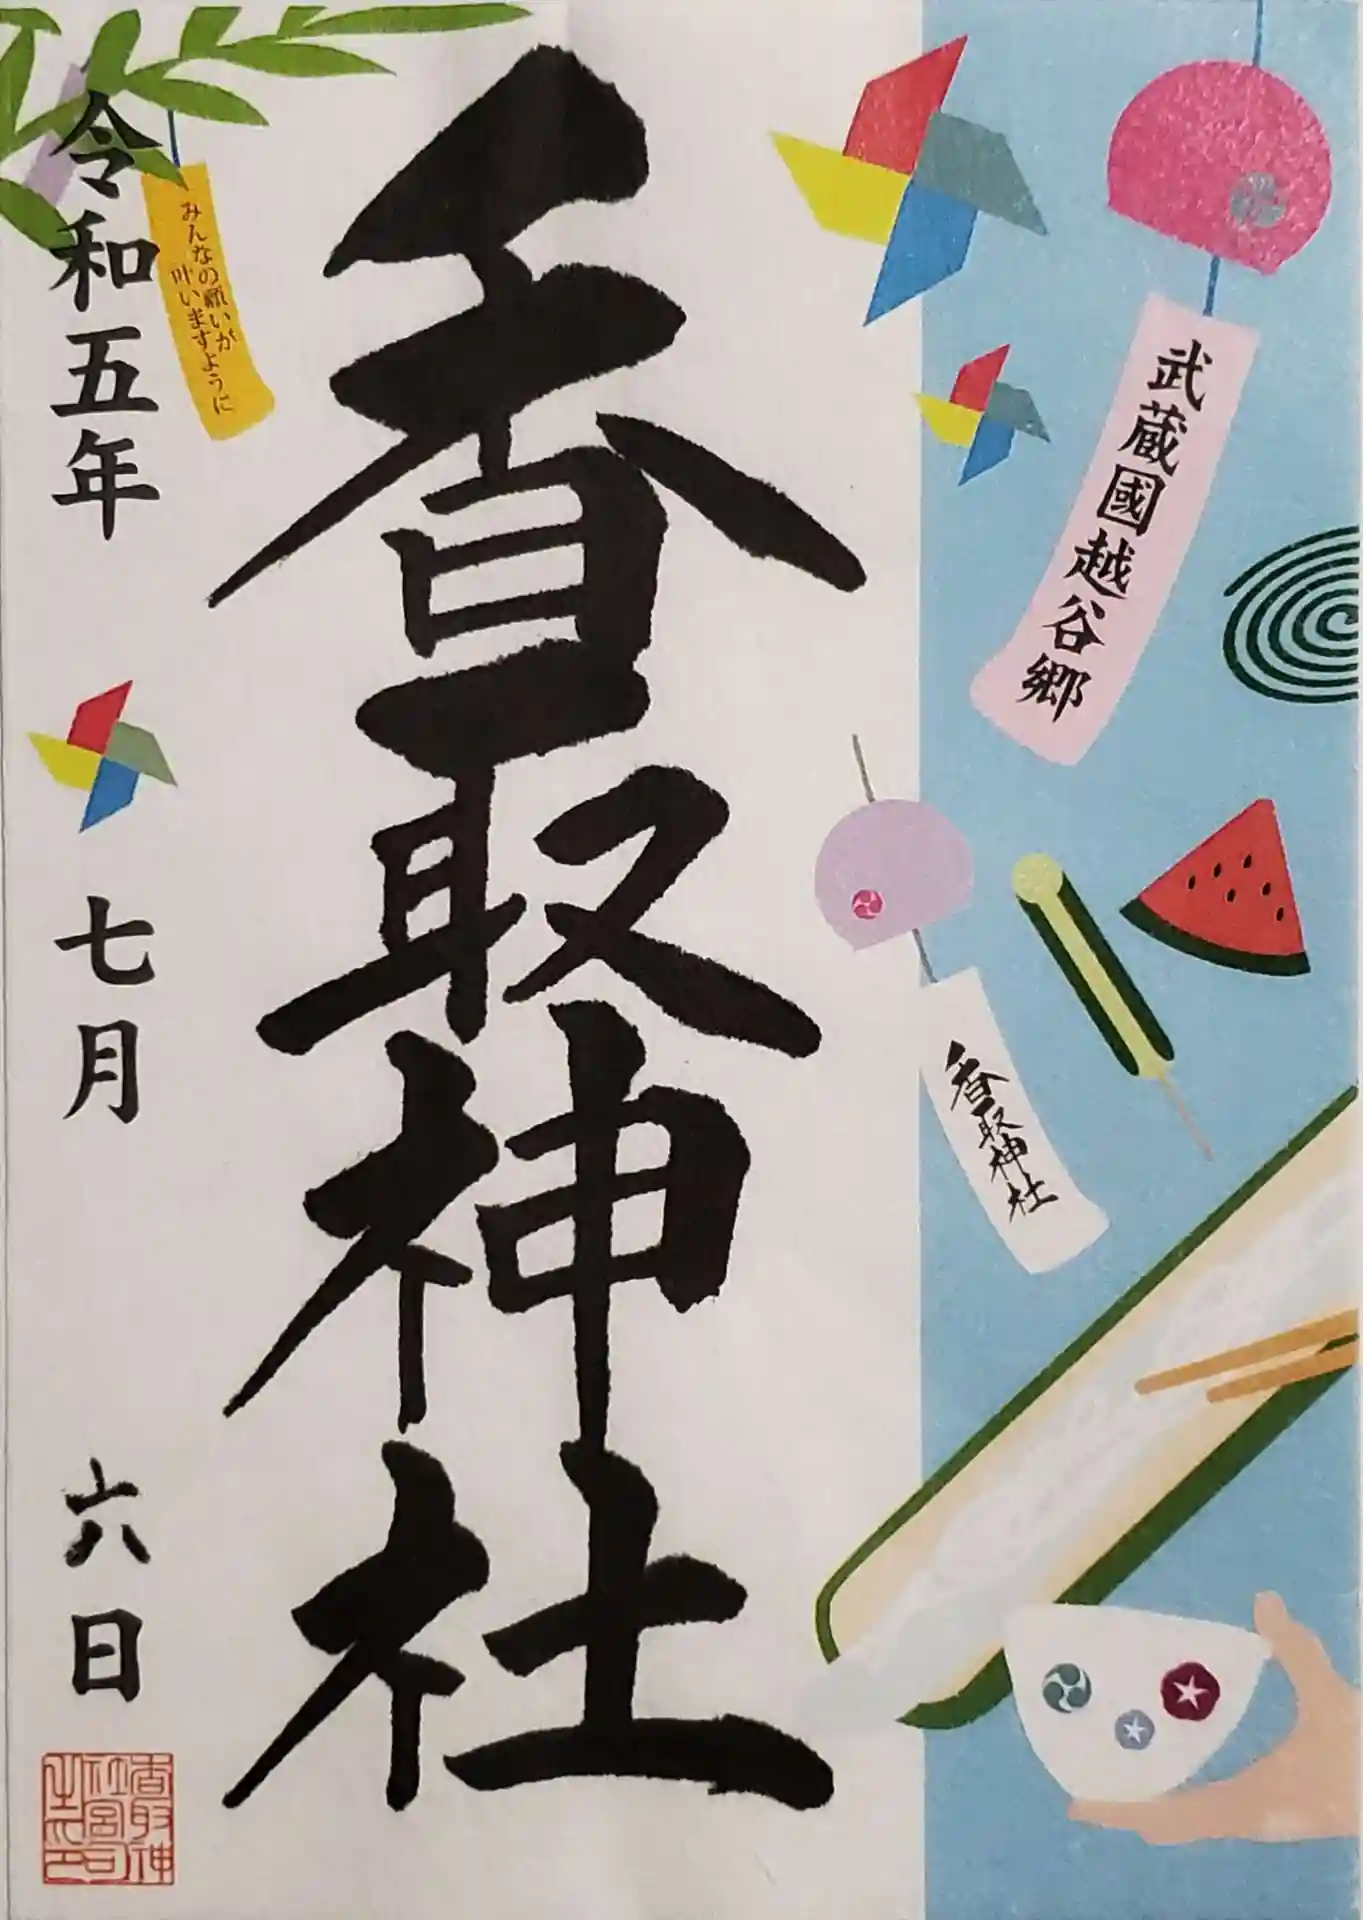 武蔵國越谷郷
香取神社
香取神社
みんなの願いが
叶いますように
令和五年
七月
六日
香取神
社宮司
之印